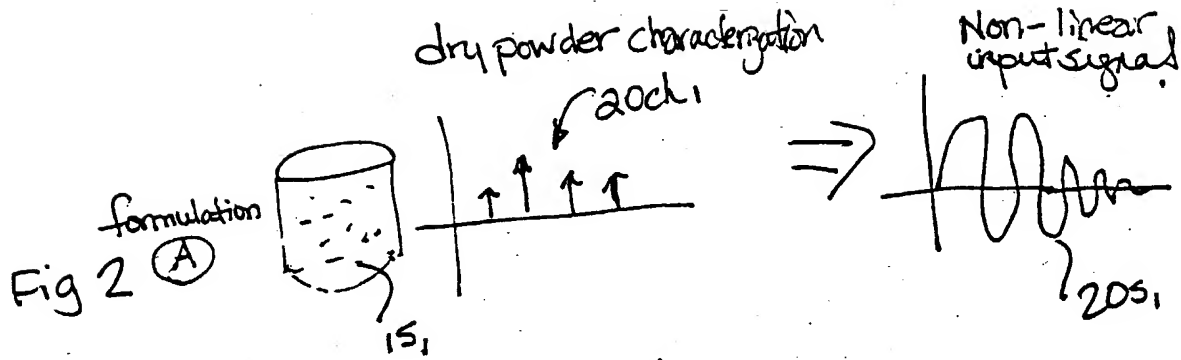 dry powder characterization
20ch₁
Non-linear
input signal
formulation
Fig 2 A
15₁
20S₁